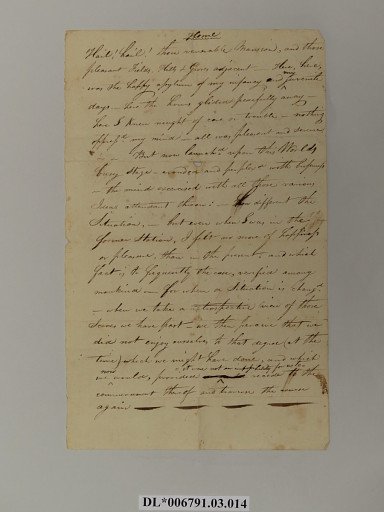 Home
Hail! hail! thou venerable Mansion, and those
pleasant Fields, Hills & Groves adjacent — Here, here,
was the happy asylum of my infancy and my juvenile
days — here the hours glided peacefully away —
here I knew naught of care or trouble — nothing
oppress'd my mind — all was pleasant and serene
— But now launched upon this World's
busy stage — and people & with business
— the mind exercised with all those various
Issues attendant thereon — different the
Situation, — but even when I was in the
former Station, I felt no more of Happiness
or pleasure, than in the present — and which
fact is so frequently the case, verified among
mankind — for when a Situation is chang'd
— when we take a retrospective view of those
Scenes we have past — we then perceive that we
did not enjoy ourselves to that degree (at the
time) which we might have done, and which
we now would, provided it was not an impossibility for us to recede to the
commencement thereof and traverse the same
again
DL*006791.03.014